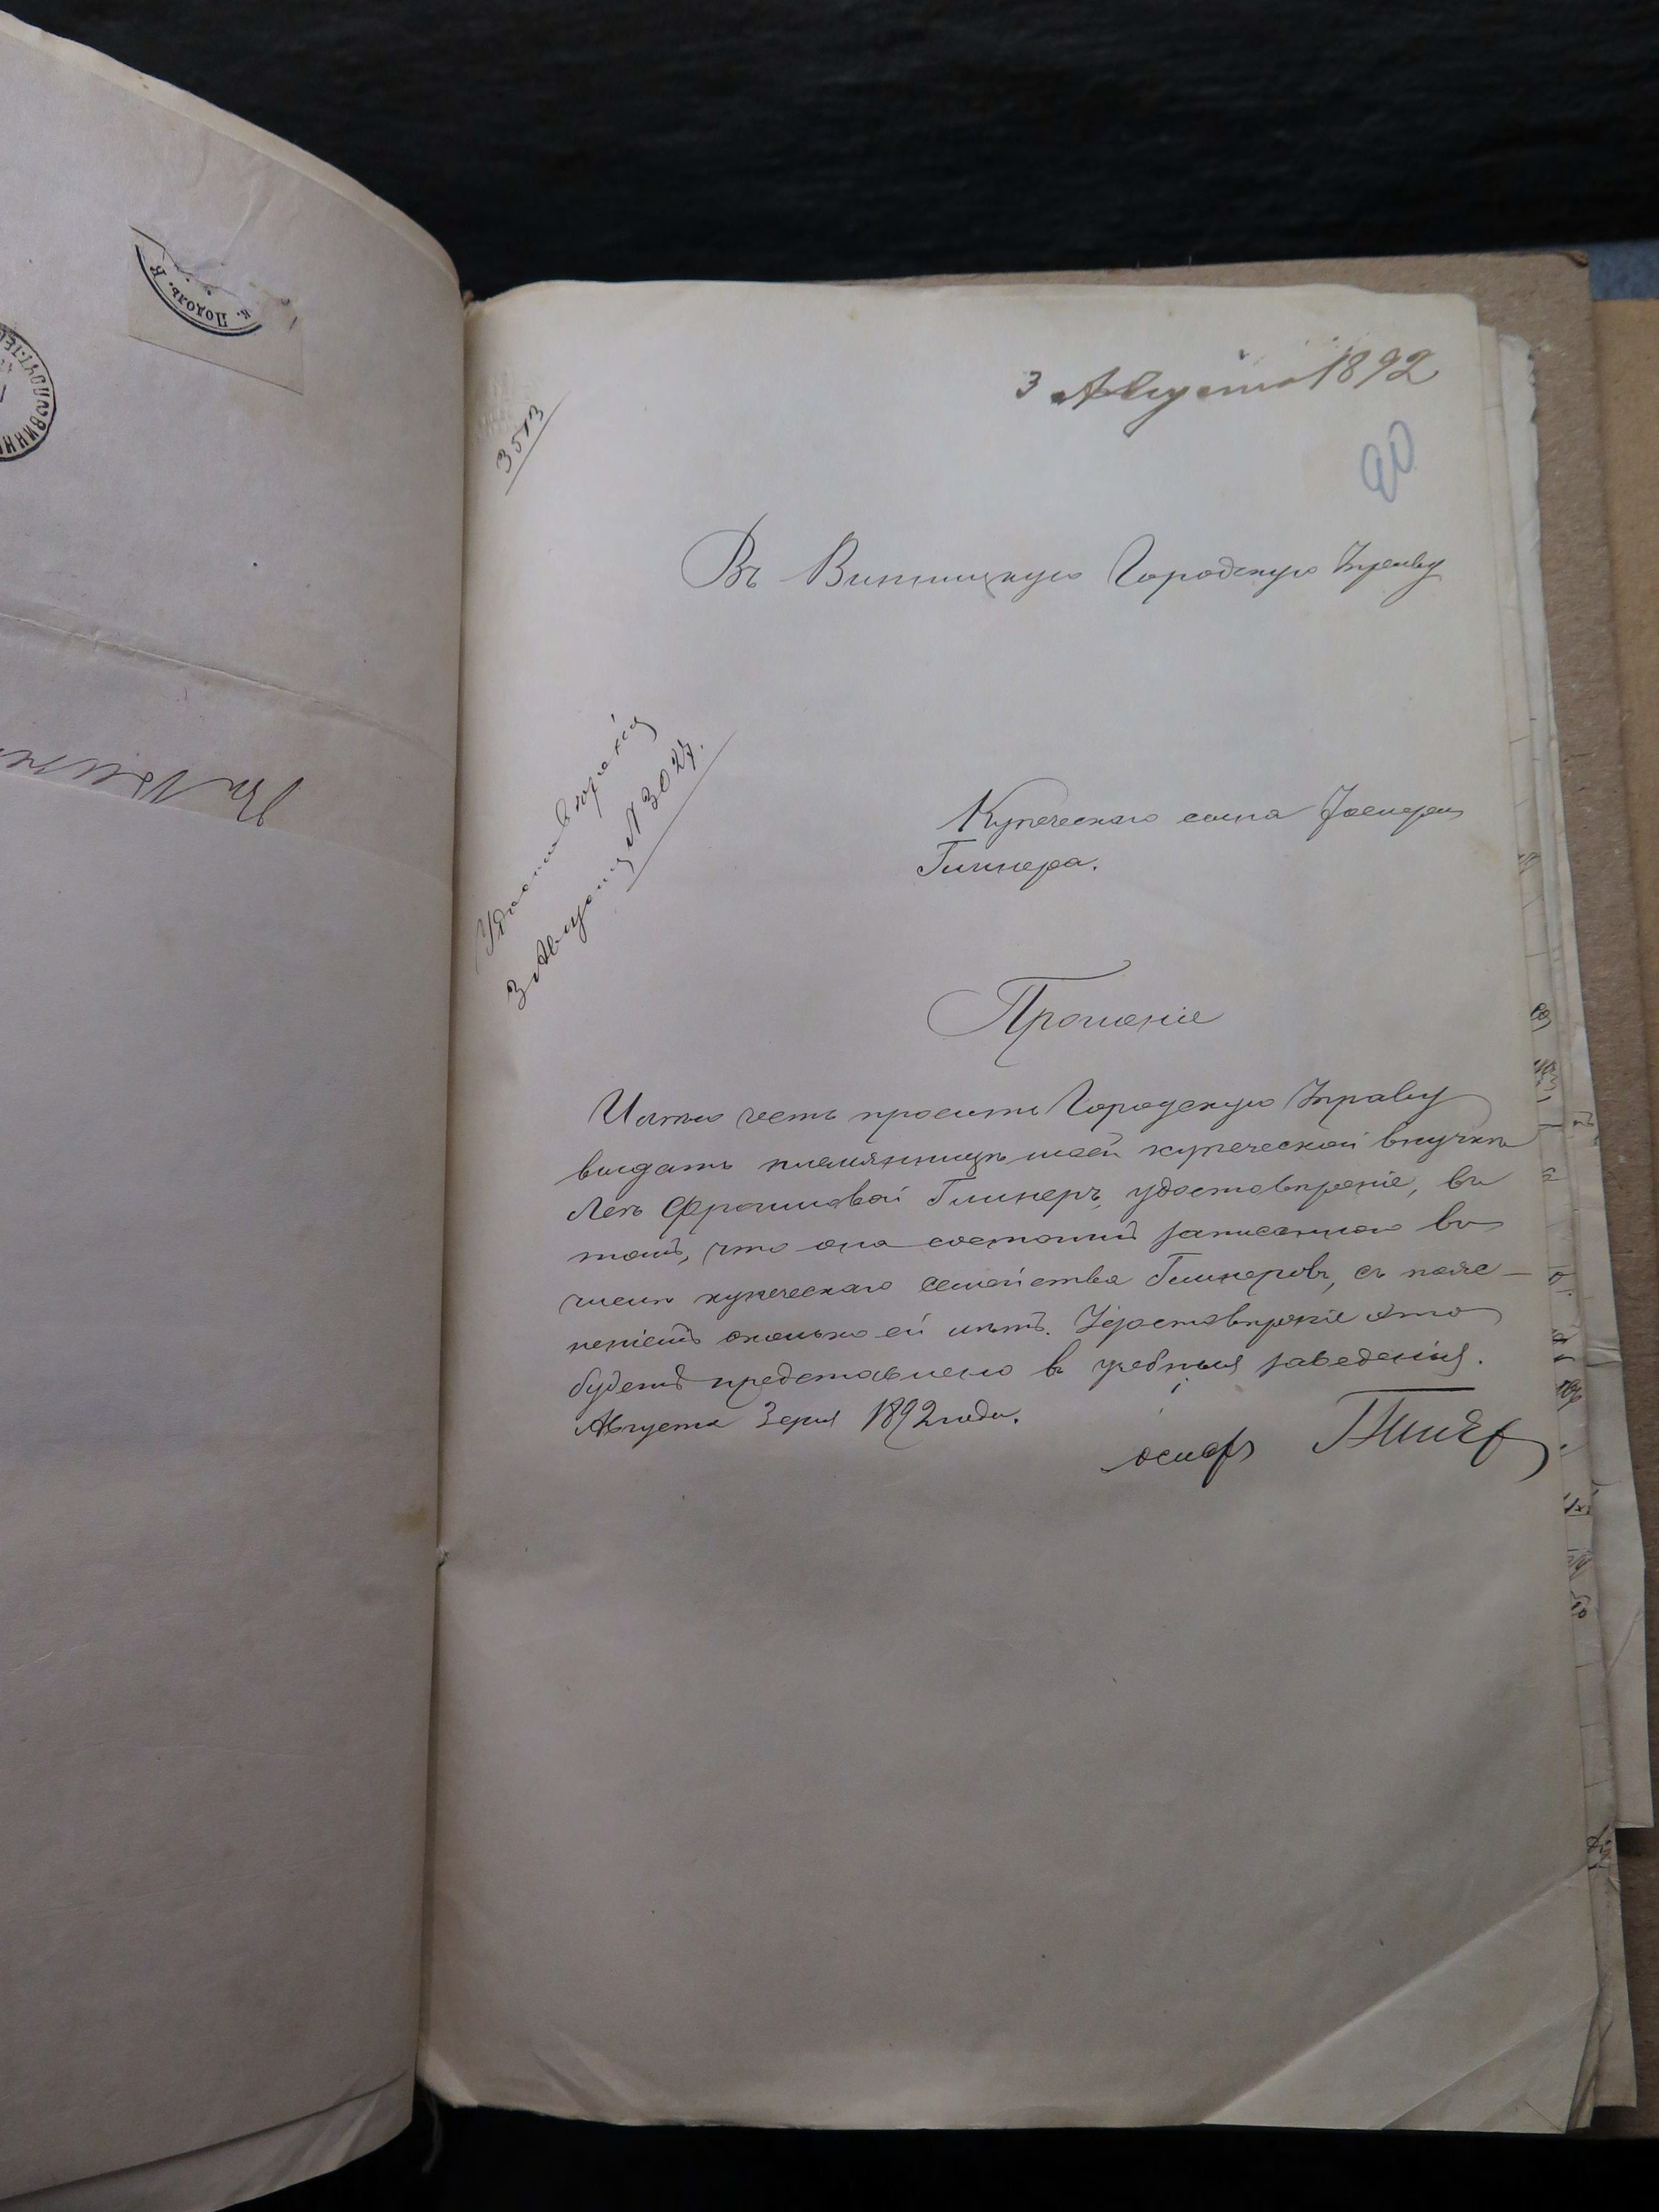 к. Подоль. Я
3 Августа 1892
3513
90
Въ Винницкую Городскую Управу
Удостовѣреніе
3 Августа № 3027.
Купеческаго сына Іосифа
Гликера.
Прошеніе
Имѣю честь просить Городскую Управу
выдать племянницѣ моей купеческой внучкѣ
Леѣ Фроимовой Гликеръ, удостовѣреніе, въ
томъ, что она состоитъ записанною въ
числѣ купеческаго семейства Гликеровъ, съ поясне-
ніемъ сколько ей лѣтъ. Удостовѣреніе это
будетъ представлено въ учебныя заведенія.
Августа 3 дня 1892 года.